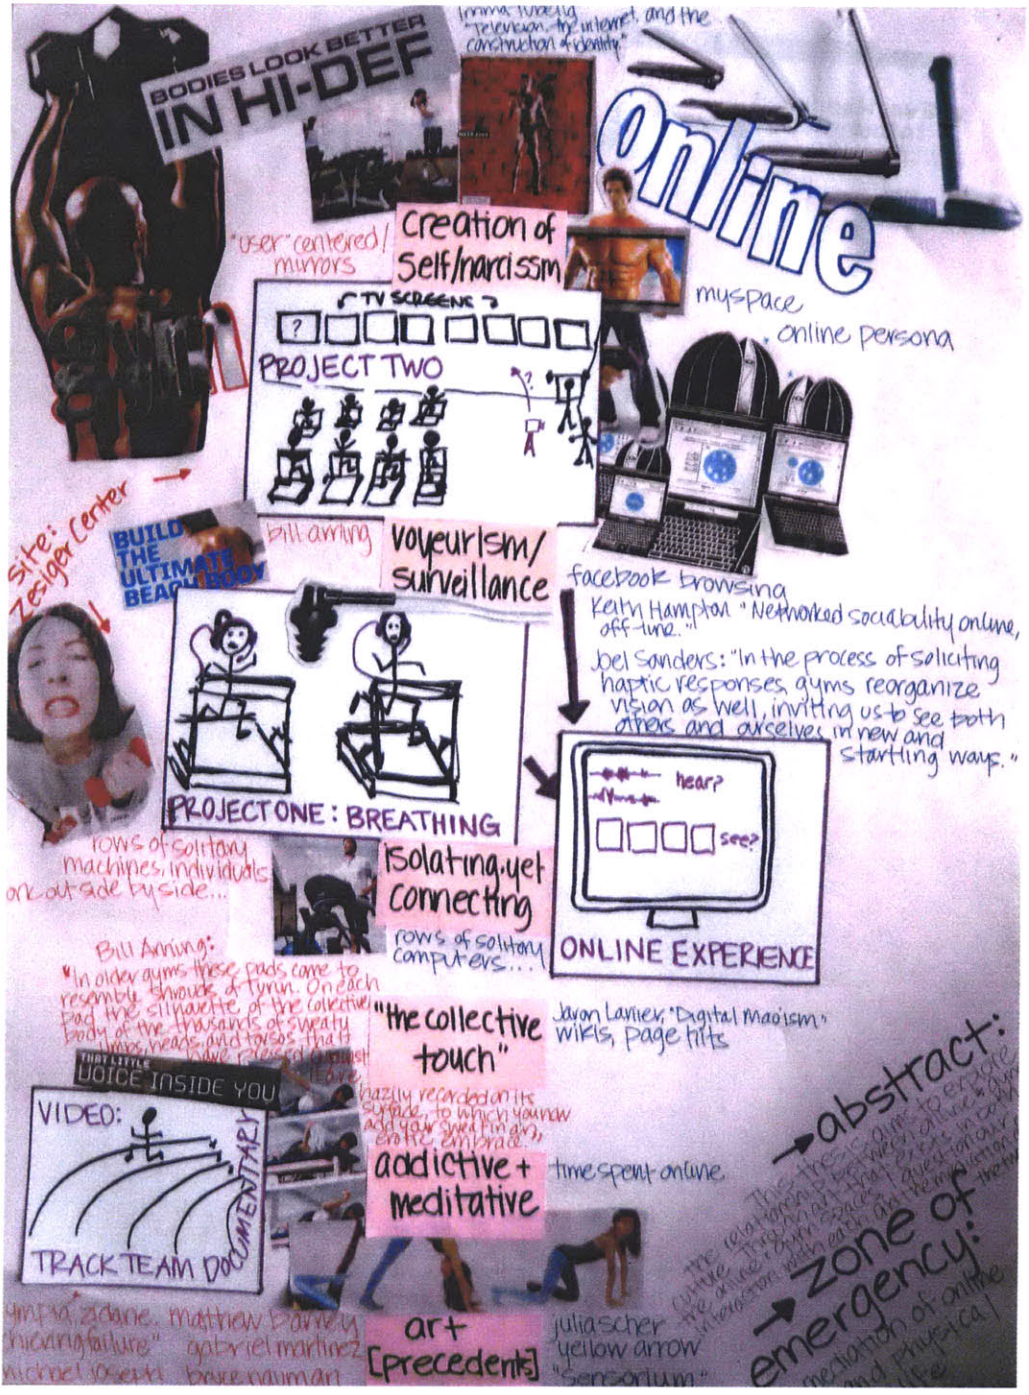 Imma Tubella
"Television, the internet, and the
construction of identity."
BODIES LOOK BETTER
IN HI-DEF
online
creation of
self/narcissm
"user" centered/
mirrors
myspace
online persona
gym
TV SCREENS
?
PROJECT TWO
?
site:
Zesiger Center
BUILD
THE
ULTIMATE
BEACH BODY
bill arning
voyeurism/
surveillance
facebook browsing
Keith Hampton "Networked sociability online,
off-line."
Joel Sanders: "In the process of soliciting
haptic responses, gyms reorganize
vision as well, inviting us to see both
others and ourselves in new and
startling ways."
PROJECT ONE: BREATHING
hear?
see?
ONLINE EXPERIENCE
rows of solitary
machines, individuals
work out side by side...
isolating, yet
connecting
rows of solitary
computers....
Bill Arning:
"In older gyms these pads come to
resemble shrouds of Turin. On each
pad the silhouette of the collective
body of the thousands of sweaty
limbs, heads, and torsos that
have pressed against
it are
hazily recorded on its
surface, to which you now
add your sweat in an
erotic embrace."
"the collective
touch"
Jaron Lanier, "Digital Maoism"
wikis, page hits
THAT LITTLE
VOICE INSIDE YOU
VIDEO:
TRACK TEAM DOCUMENTARY
addictive +
meditative
time spent online
abstract:
This thesis aims to explore
the relationship between online + gym
culture through art that exists in both
the online + gym space. I question our
interaction with each and the
zone of
emergency:
mediation of online
and physical
life
zidane. matthew barney
failure" gabriel martinez
michael joseph bruce nauman
art
[precedents]
julia scher
yellow arrow
"Sensorium"